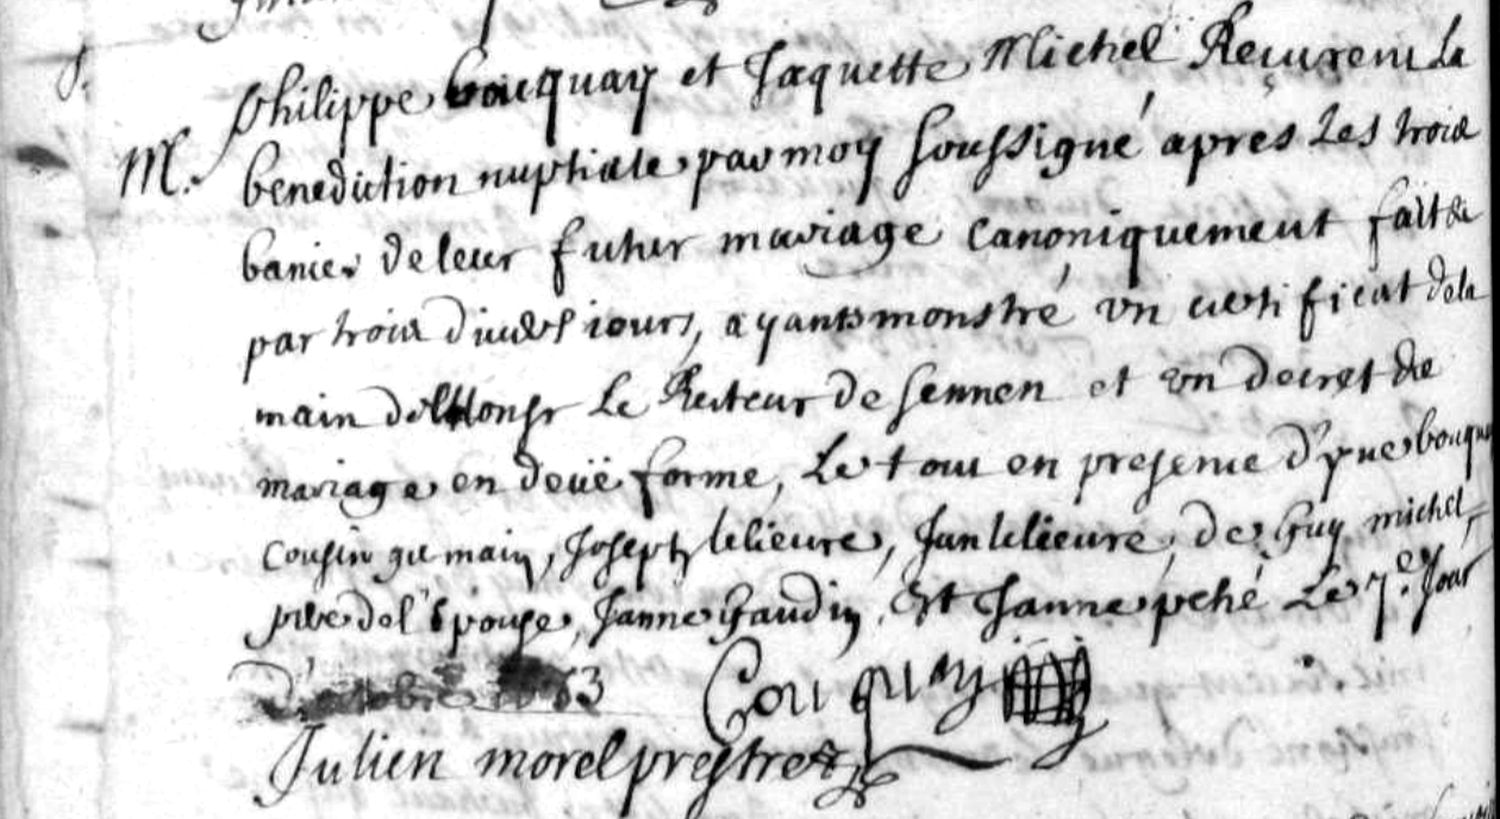 Philippe bouquay et Jaquette Michel Reçurent la
M. benediction nuptiale par moy soussigné apres les trois
banies de leur futur mariage canoniquement faitte
par trois divers iours, ayants monstré vn certificat de la
main de Monsr le Recteur de Sennen et vn decret de
mariage en deüe forme, Le tout en presence d'yues bouqu
cousin germain, Joseph lelieure, Jan lelieure, de Guy michel,
pere de l'Epouse, Janne Gaudin, Et Janne pehé Le 7.e Jour
d'octobre
Couquay
Julien morel prestre